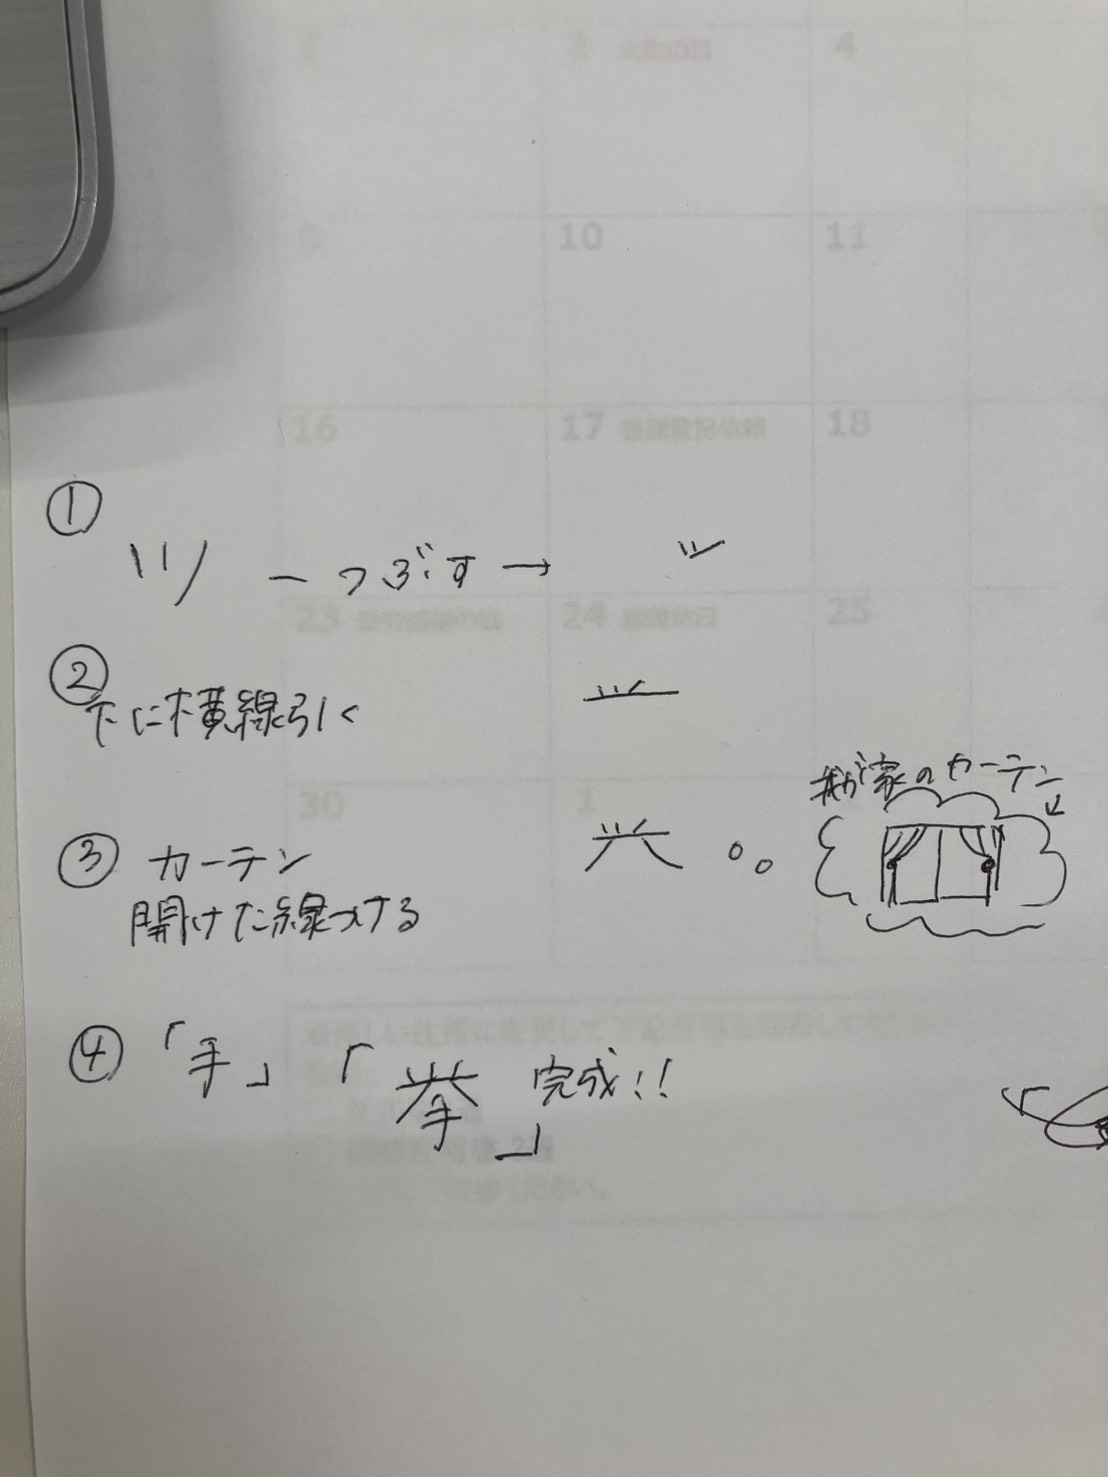 ①
ツ ー つぶす → ツ
②
下に横線引く
我が家のカーテン
③ カーテン
開けた線つける
④ 「手」「挙」完成!!
3
4
10
11
16
17
18
23
24
25
30
1